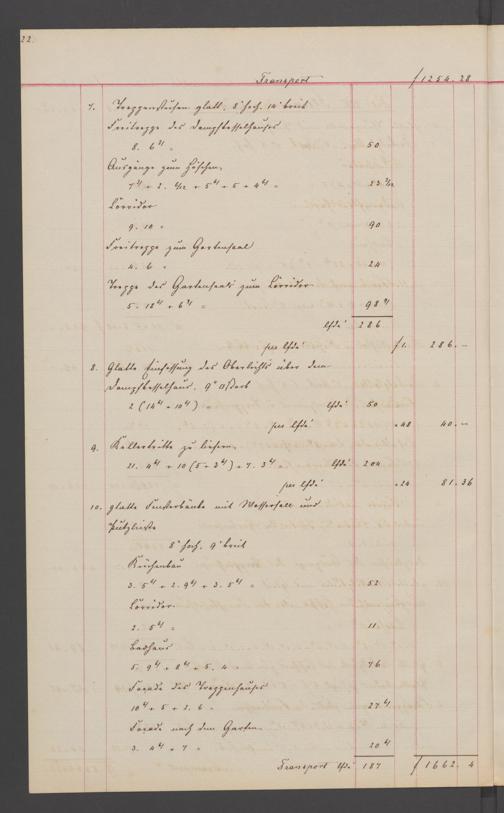 22.
Transport f 1254. 28
7. Treppenstufen glatt, 8" hoch, 14" breit
Freitreppe des Dampfkesselhauses
8. 6 = 50
Ausgänge zum Höfchen
Corridor
9. 10 = 90
Freitreppe zum Gartensaal
4. 6 = 24
Treppe des Gartensaals zum Corridor
lfde' 286
per lfde' f 1. 286. —
8. Glatte Einfassung des Oberlichts über dem
Dampfkesselhaus, 9"
lfde' 50
per lfde' " 48 40. —
9. Kellertritte zu liefern
lfde' 204
per lfde' " 24 81. 36
10. glatte Fensterbänke mit Wasserfall und
Putzleiste
8" hoch, 9" breit
Küchenbau
52
Corridor
11
Badhaus
76
Façade des Treppenhauses
Façade nach dem Garten
Transport lfde' 187 f 1662. 4